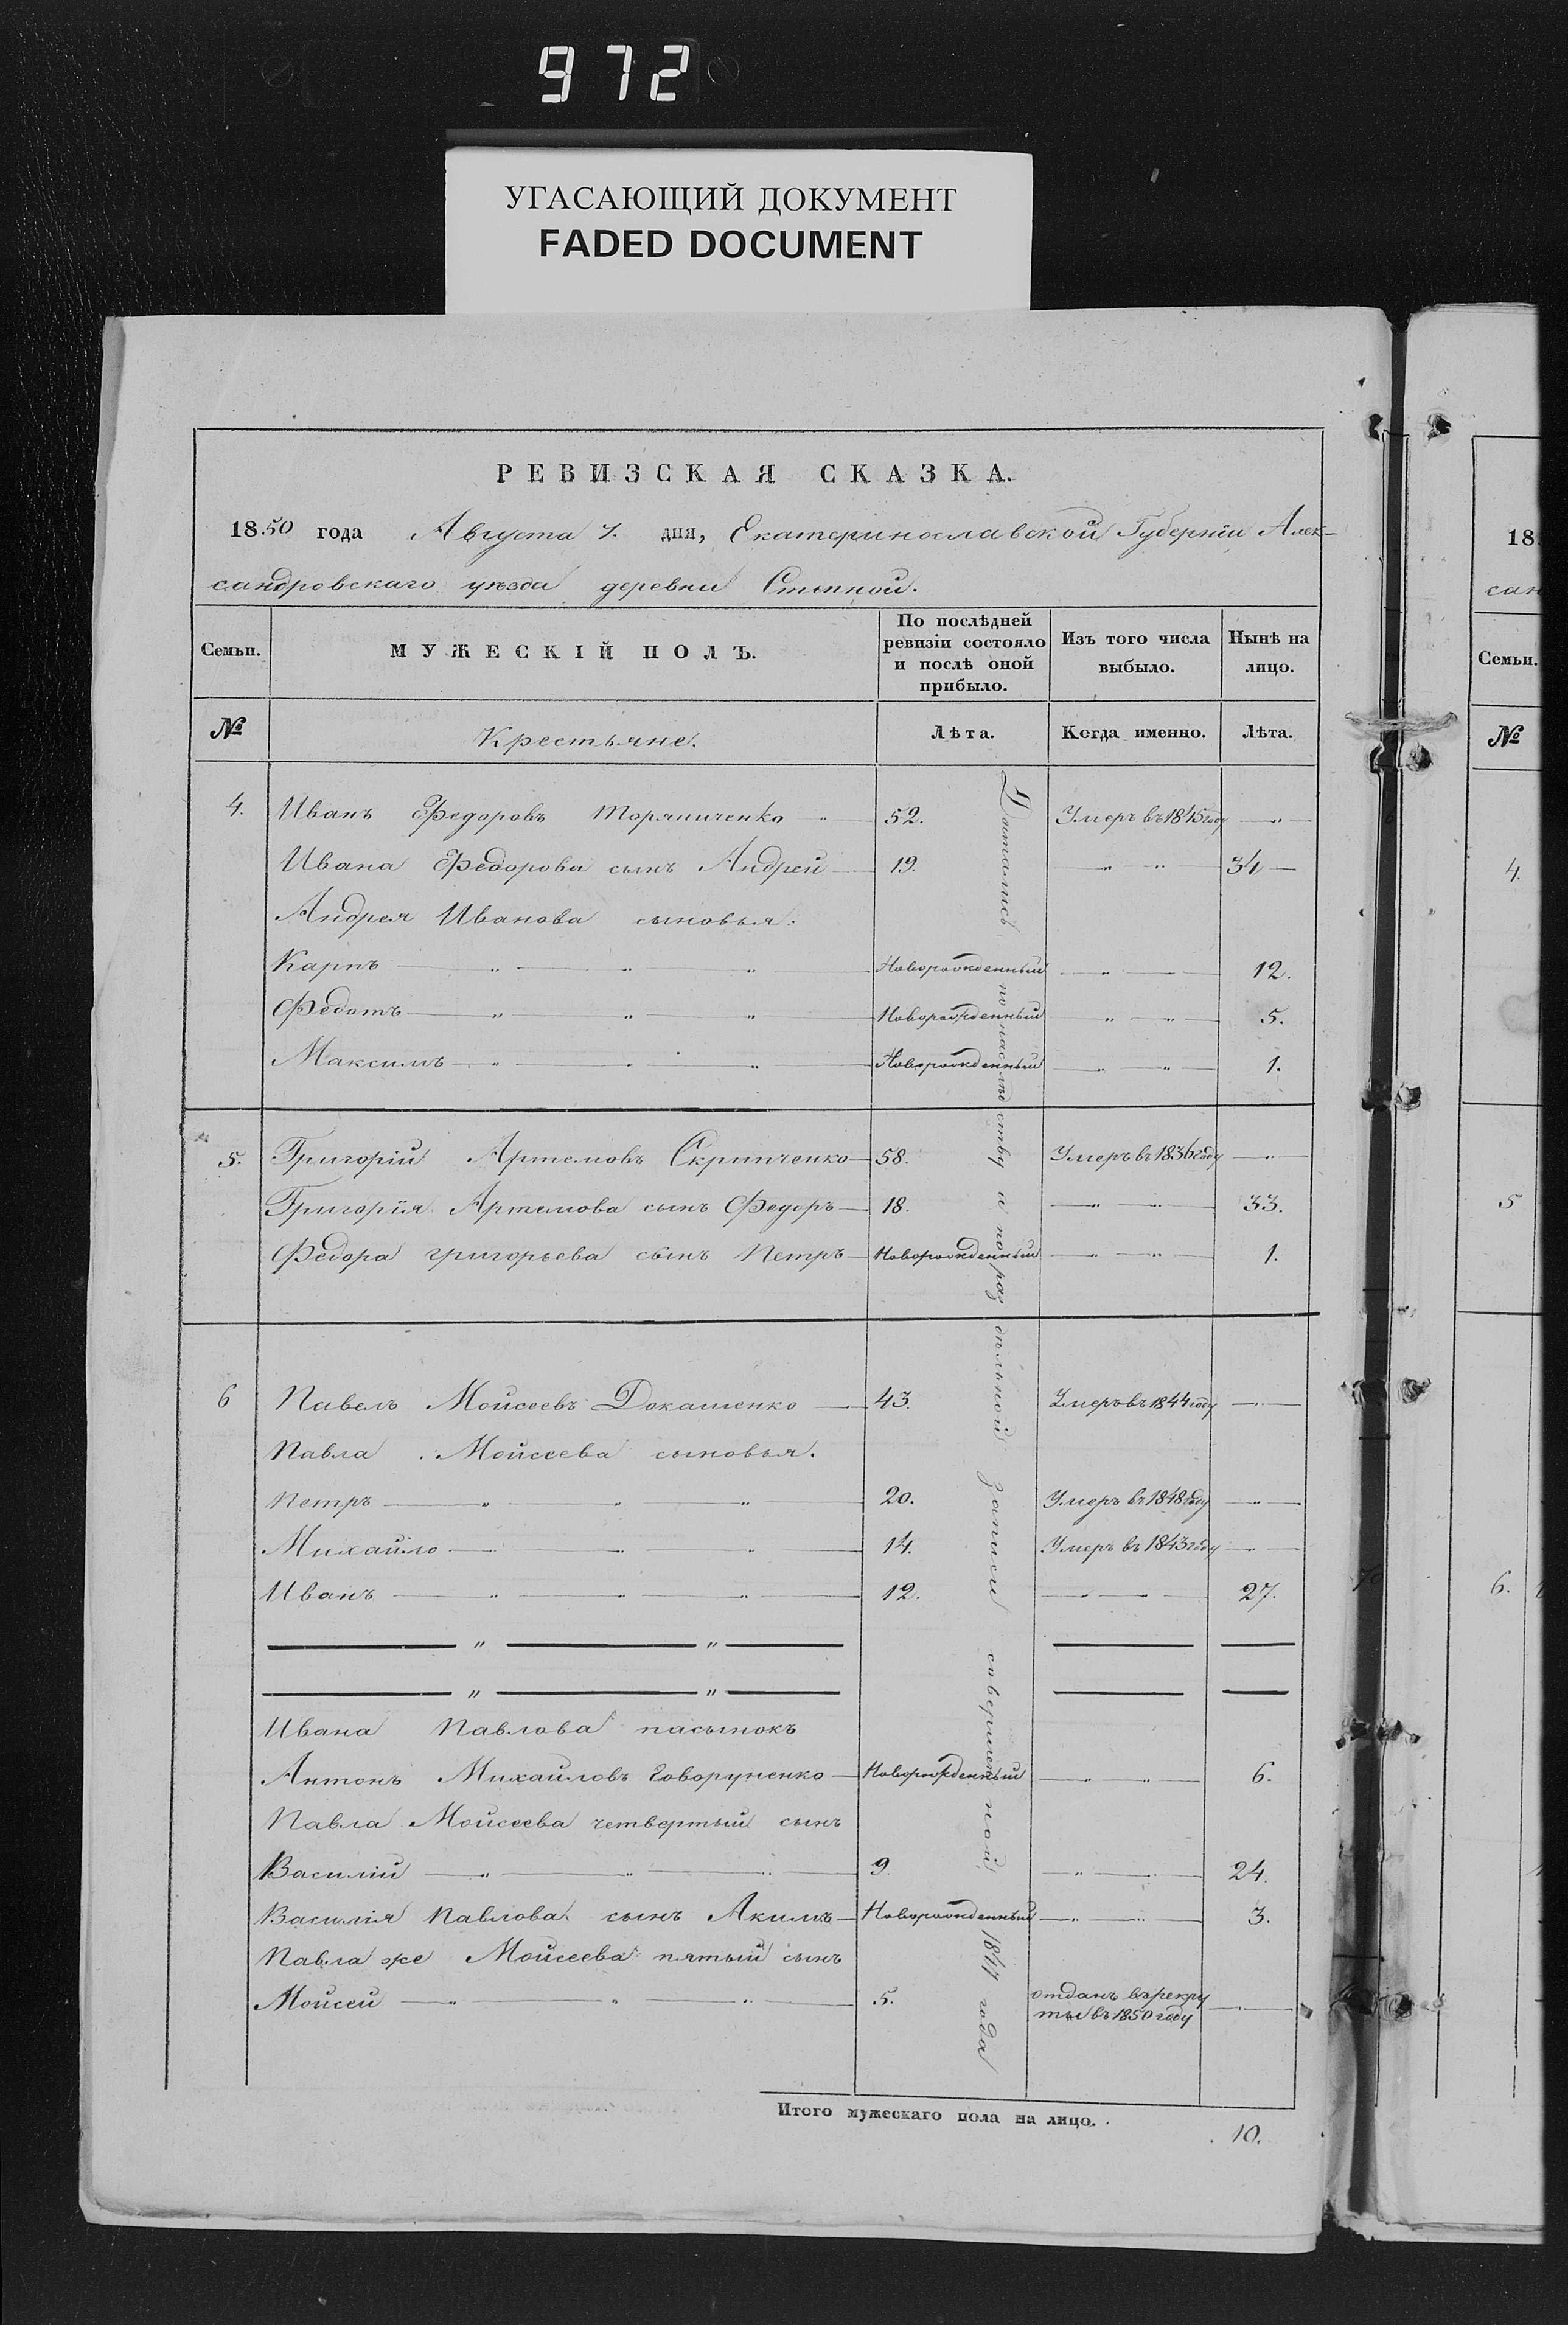 972
УГАСАЮЩИЙ ДОКУМЕНТ
FADED DOCUMENT
РЕВИЗСКАЯ СКАЗКА.
1850 года Августа 7. дня, Екатеринославской Губерніи Алек-
сандровскаго уѣзда деревни Степной.
Семьи.
МУЖЕСКІЙ ПОЛЪ.
По послѣдней
ревизіи состояло
и послѣ оной
прибыло.
Изъ того числа
выбыло.
Нынѣ на
лицо.
№ Крестьяне. Лѣта. Когда именно. Лѣта.
4. Иванъ Федоровъ 52. Умеръ въ 1845 году — " —
Ивана Федорова сынъ Андрей — 19. — " — " 34 —
Андрея Ивановa сыновья:
Карпъ — " — " — " — Новорожденный — " — 12.
Федотъ — " — " — " — Новорожденный — " — " — 5.
Максимъ — " — " — " — Новорожденный — " — " — 1.
5. Григорій Артемовъ Скрипченко — 58. Умеръ въ 1836 году — " —
Григорія Артемова сынъ Федоръ — 18. — " — " — 33.
Федора Григорьева сынъ Петръ — Новорожденный — " — " — 1.
6 Павелъ Моисеевъ Докашенко — 43. Умеръ въ 1844 году — " —
Павла Моисеева сыновья.
Петръ — " — " — " — 20. Умеръ въ 1848 году — " —
Михайло — " — " — " — 14. Умеръ въ 1843 году — " —
Иванъ — " — " — " — 12. — " — " — 27.
— " — " — — —
— " — " — — —
Ивана Павлова пасынокъ
Антонъ Михайловъ — Новорожденный — " — " — 6.
Павла Моисеева четвертый сынъ
Василій — " — " — " — 9. — " — " — 24.
Василія Павлова сынъ Акимъ — Новорожденный — " — " — 3.
Павла же Моисеева пятый сынъ
Моисей — " — " — " — 5. отданъ въ рекру
ты въ 1850 году — " —
по наследству и по раздѣльной записи совершенной 1844 года
Итого мужескаго пола на лицо.
10.
18
сан
Семьи.
№
4.
5
6.